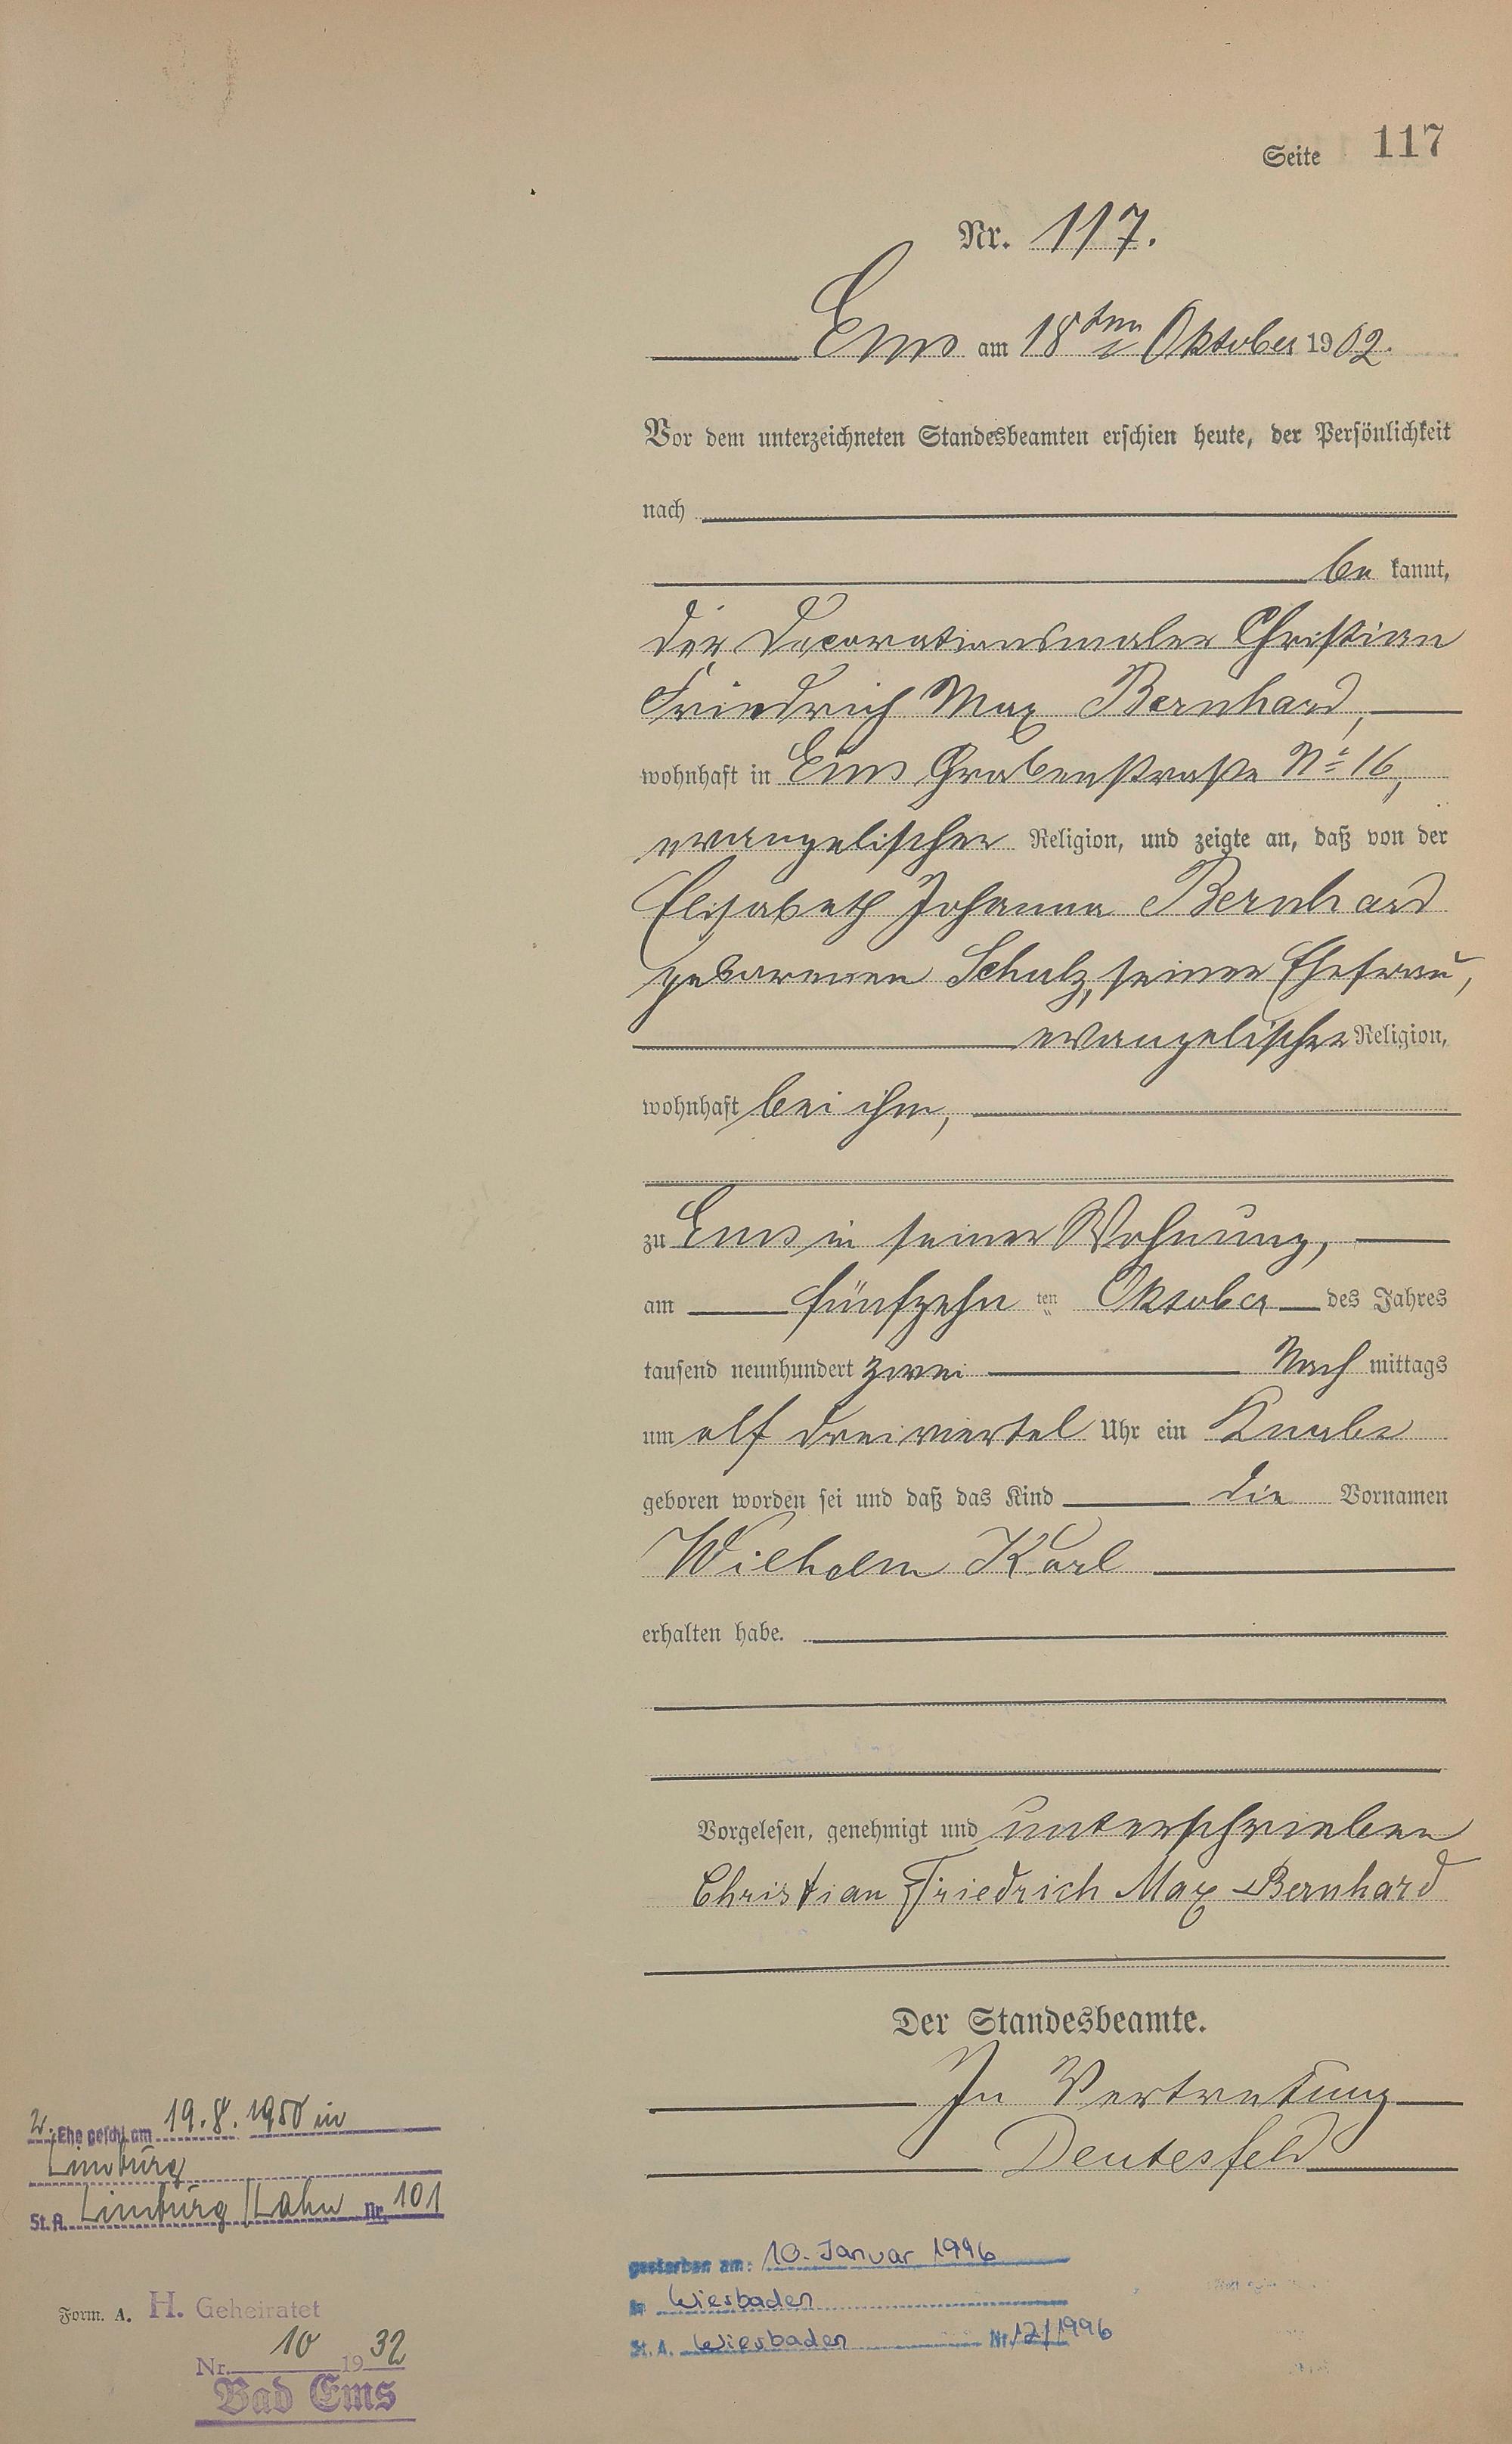 Seite 117
Nr. 117.
Ems am 18ten Oktober 1902.
Vor dem unterzeichneten Standesbeamten erschien heute, der Persönlichkeit
nach
be kannt,
der Decorationsmaler Christian
Friedrich Max Bernhard,
wohnhaft in Ems Grabenstraße No 16,
evangelischer Religion, und zeigte an, daß von der
Elisabeth Johanna Bernhard
geborenen Schulz, seiner Ehefrau,
evangelischer Religion,
wohnhaft bei ihm,
zu Ems in seiner Wohnung,
am fünfzehn ten Oktober des Jahres
tausend neunhundert zwei Nach mittags
um elf dreiviertel Uhr ein Knabe
geboren worden sei und daß das Kind die Vornamen
Wilhelm Karl
erhalten habe.
Vorgelesen, genehmigt und unterschrieben
Christian Friedrich Max Bernhard
Der Standesbeamte.
In Vertretung
Deutesfeld
2. Ehe geschl. am 19.8.1950 in
Limburg
St. A. Limburg/Lahn Nr. 101
Form. A. H. Geheiratet
Nr. 10 1932
Bad Ems
gestorben am: 10. Januar 1996
in Wiesbaden
St. A. Wiesbaden Nr. 12/1996